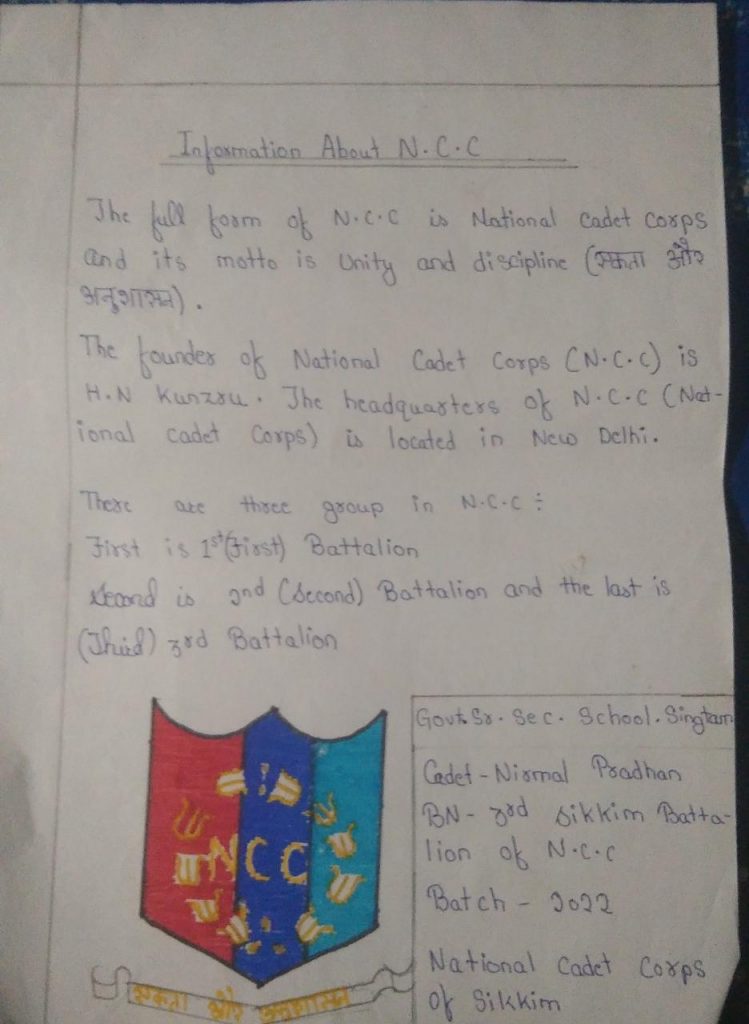 Information About N.C.C
The full form of N.C.C is National Cadet Corps
and its motto is Unity and discipline (एकता और
अनुशासन).
The founder of National Cadet Corps (N.C.C) is
H.N Kunzru. The headquarters of N.C.C (Nat-
ional cadet Corps) is located in New Delhi.
There are three group in N.C.C :
First is 1st (First) Battalion
Second is 2nd (Second) Battalion and the last is
(Third) 3rd Battalion
NCC
एकता और अनुशासन
Govt. Sr. Sec. School. Singtam
Cadet - Nirmal Pradhan
BN - 3rd Sikkim Batta-
lion of N.C.C
Batch - 2022
National Cadet Corps
of Sikkim